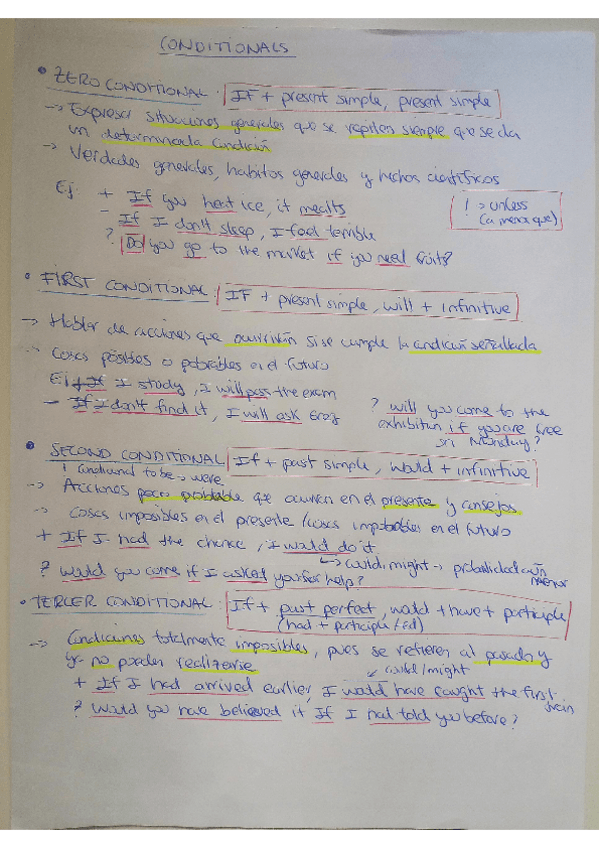 CONDITIONALS
• ZERO CONDITIONAL: IF + present simple, present simple
-> Expresar situaciones generales que se repiten siempre que se da
un determinada condición
-> Verdades generales, habitos generales y hechos científicos
Ej: + If you heat ice, it mealts
! > unless
(a menos que)
- If I don't sleep, I feel terrible
? Do you go to the market if you need fruits?
• FIRST CONDITIONAL: IF + present simple, will + infinitive
-> Hablar de acciones que ocurrirán si se cumple la condición señalada
-> Cosas posibles o probables en el futuro
Ej: + If I study, I will pass the exam
- If I don't find it, I will ask
? will you come to the
exhibition if you are free
on Monday?
• SECOND CONDITIONAL If + past simple, would + infinitive
! Condicional to be -> were
-> Acciones poco probable que ocurren en el presente y consejos
-> Cosas imposibles en el presente / cosas improbables en el futuro
+ If I had the chance, I would do it
-> could, might -> probabilidad aún
menor
? Would you come if I asked you for help?
• TERCER CONDITIONAL: If + past perfect, would + have + participle
(had + participle / ed)
-> Condiciones totalmente imposibles, pues se refieren al pasado y
ya no pueden realizarse
could/might
+ If I had arrived earlier, I would have caught the first
train
? Would you have believed it If I had told you before?